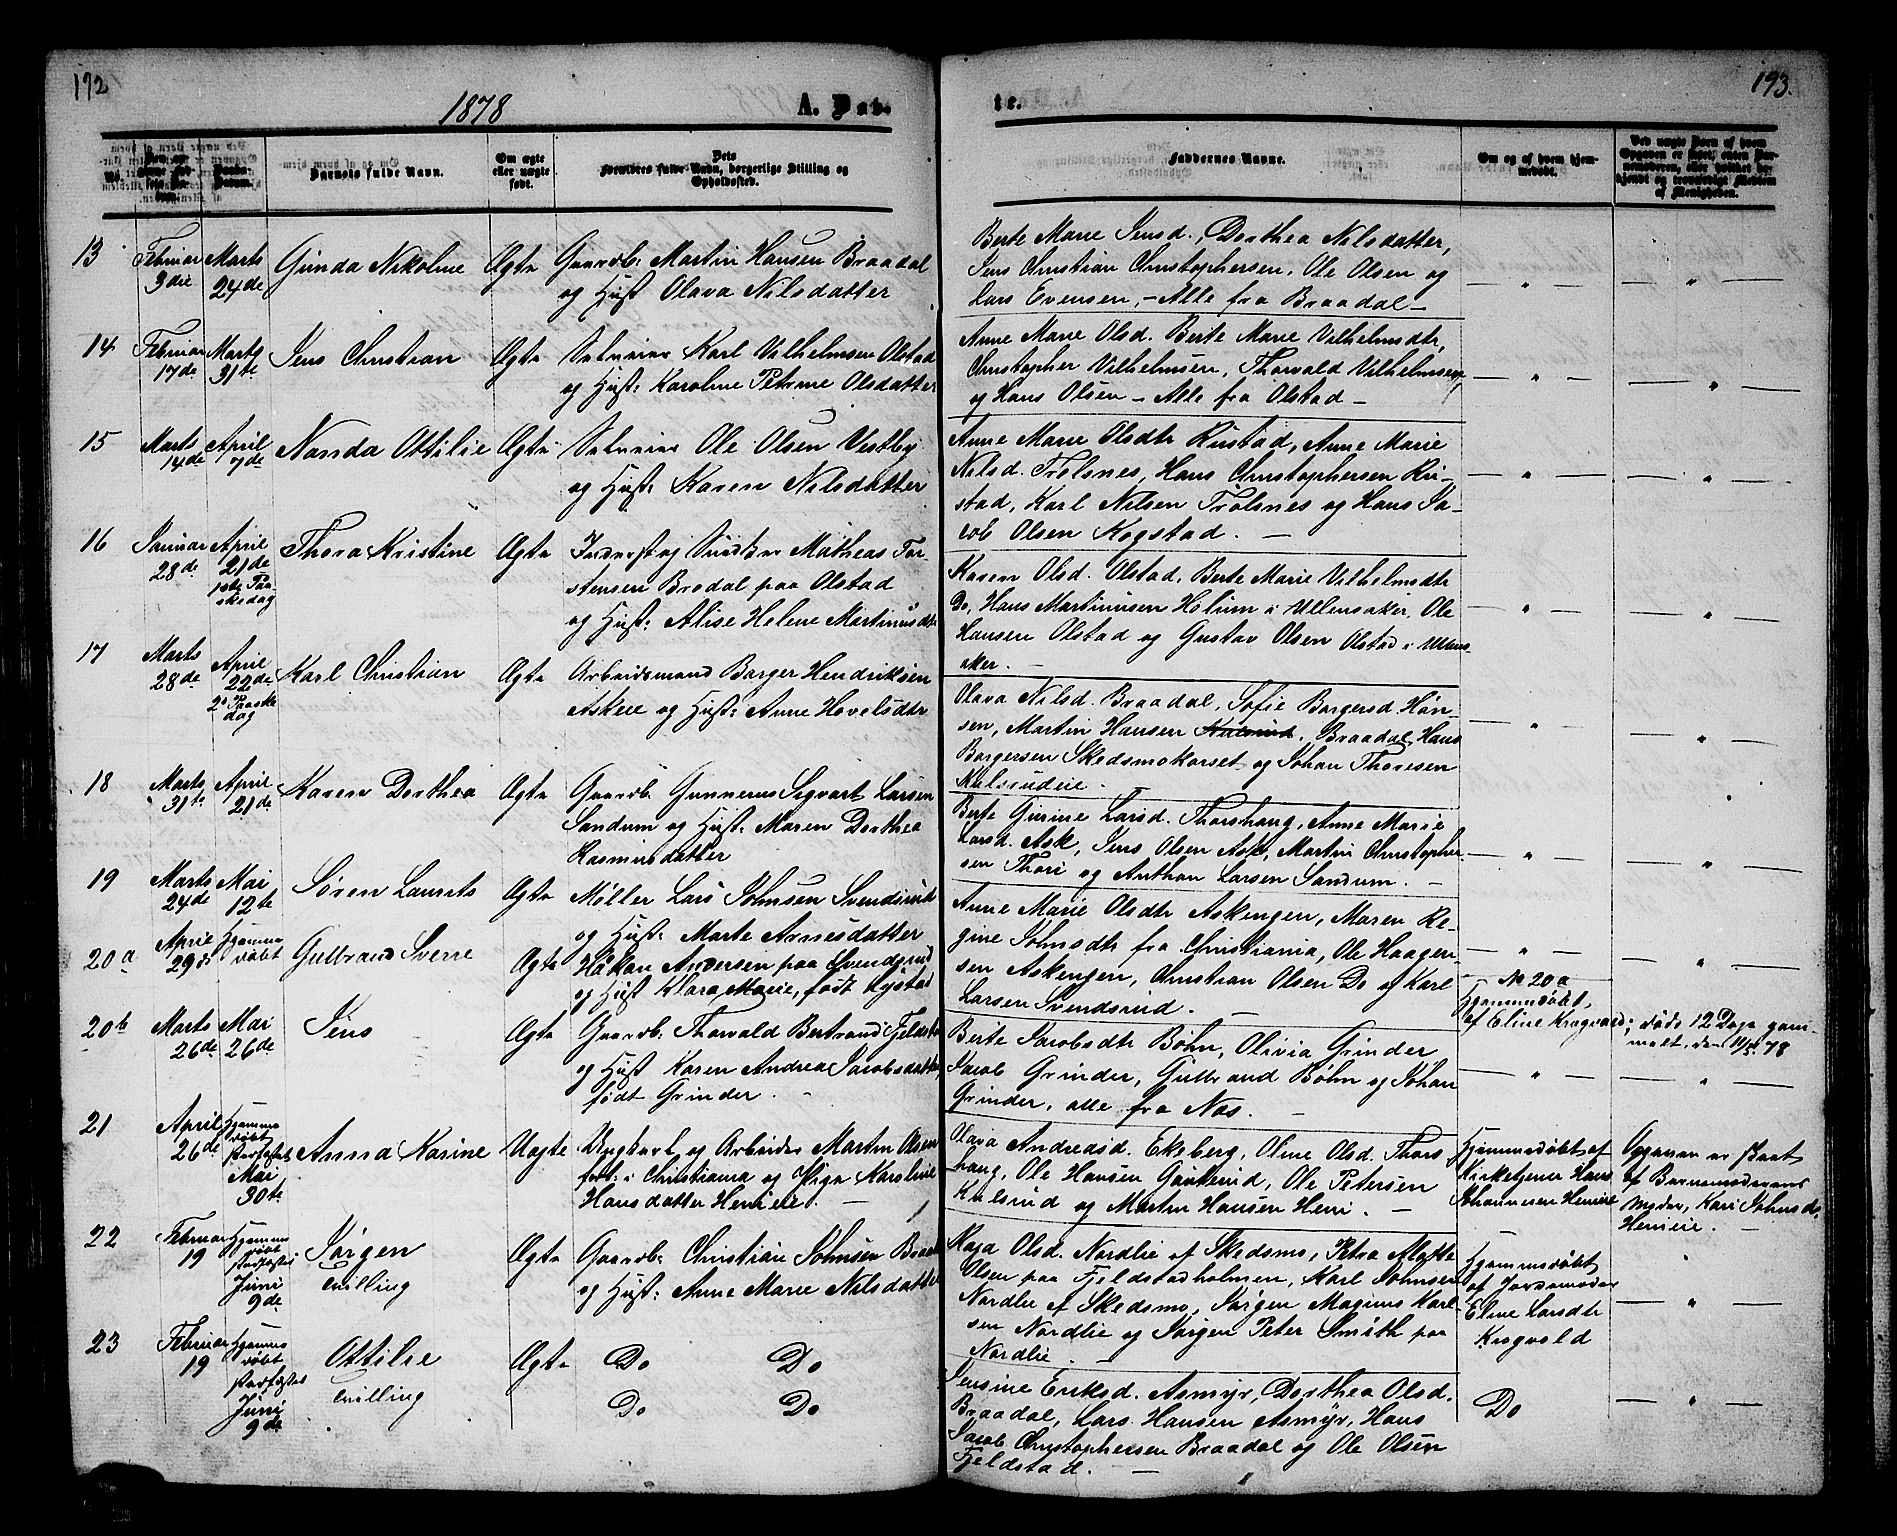 192
1878
A. Døb-
No.
Daabs-
Datum.
Barnets fulde Navn.
Om ægte
eller uægte
født.
Forældres fulde Navn, borgerlige Stilling og
Opholdssted.
13
Februar
3die
Marts
24de
Gunda Nikoline
Ægte
Gaardb. Martin Hansen Braadal
og Hust Olava Nilsdatter
14
Februar
17de
Marts
31te
Jens Christian
Ægte
Selveier Karl Vilhelmsen Olstad
og Hust: Karoline Petrine Olsdatter
15
Marts
14de
April
7de
Nanda Ottilie
Ægte
Selveier Ole Olsen Vestby
og Hust: Karen Nilsdatter
16
Januar
28de
April
21de
1ste Paa-
skedag
Thora Kristine
Ægte
Inderst og Snedker Matheas Tor-
stensen Brodal paa Olstad
og Hust: Alise Helene Martinusdtr
17
Marts
28de
April
22de
2den Paaske
dag
Karl Christian
Ægte
Arbeidsmand Borger Hendriksen
Askeie og Hust: Anne Hovelsdtr
18
Marts
31te
April
21de
Karen Dorthea
Ægte
Gaardb. Gunnerus Sigvart Larsen
Sandum og Hust: Maren Dorthea
Rasmusdatter
19
Marts
24de
Mai
12te
Søren Laurits
Ægte
Møller Lars Johnsen Svendsrud
og Hust: Marte Arnesdatter
20a
April
29de
Hjemme
døbt
Gulbrand Sverre
Ægte
Håkan Andersen paa Svendsrud
og Hust Klara Marie, født Nystad
20b
Marts
26de
Mai
26de
Jens
Ægte
Gaardb. Thorvald Bertrand Fjeldstad
og Hust: Karen Andrea Jacobsdatter
født Grinder.
21
April
26de
Hjemme
døbt
stadfæstet
Mai
30te
Anna Karine
Uægte
Ungkarl og Arbeider Martin Olsen
født i Christiania og Pige Karoline
Hansdatter Henieie.
22
Februar
19
Hjemme
døbt
stadfæstet
Juni
9de
Jørgen
tvilling
Ægte
Gaardb: Christian Johnsen Braadal
og Hust: Anne Marie Nilsdatter
23
Februar
19
Hjemme
døbt
stadfæstet
Juni
9de
Ottilie
tvilling
Ægte
Do Do
Do Do
193.
te.
Faddernes Navne.
Om og af hvem hjem-
medøbt.
Berte Marie Jensd., Dorthea Nilsdatter,
Jens Christian Christophersen, Ole Olsen og
Lars Evensen, - Alle fra Braadal -
Anne Marie Olsd. Berte Marie Vilhelmsdtr,
Christopher Vilhelmsen, Thorvald Vilhelmsen,
og Hans Olsen - Alle fra Olstad -
Anne Marie Olsdtr Rustad, Anne Marie
Nilsd. Trølsnes, Hans Christophersen Ru-
stad, Karl Nilsen Trølsnes og Hans Ja-
cob Olsen Kogstad. -
Karen Olsd. Olstad, Berte Marie Vilhelmsdtr
Do, Hans Martinusen Holum i Ullensaker, Ole
Hansen Olstad og Gustav Olsen Olstad i Ullens-
aker. -
Olava Nilsd. Braadal, Sofie Borgersd. Høn-
sen, Martin Hansen Kulsrud, Braadal, Hans
Borgersen Skedsmokorset og Johan Thoresen
Kulsrudeie.
Berte Gurine Larsd. Thorshaug, Anne Marie
Larsd. Ask, Jens Olsen Ask, Martin Christopher-
sen Thori og Anthon Larsen Sandum. -
Anne Marie Olsdtr Askengen, Maren Re-
gine Johnsdtr fra Christiania, Ole Haagen-
sen Askengen, Christian Olsen Do og Karl
Larsen Svendsrud. -
No 20a
Hjemmedøbt,
af Eline Kragvold; døde 12 Dage gam-
melt, den 11/5 78
Berte Jacobsdtr Bøhn, Olivia Grinder
Jacob Grinder, Gulbrand Bøhn og Johan
Grinder, alle fra Nas. -
Olava Andreasd. Ekeberg, Oline Olsd. Thors
haug, Ole Hansen Gauterud, Ole Petersen
Kulsrud og Martin Hansen Heni. -
Hjemmedøbt af
Kirketjener Hans
Johannesen Henieie
Opgaven er skeet
af Barnemoderens
Moder, Kari Johnsd.
Henieie. -
Kaja Olsd. Nordlie af Skedsmo, Petra
Olsen paa Fjeldstadholmen, Karl Johnsen
Nordlie af Skedsmo, Jørgen Magnus Karl-
sen Nordlie og Jørgen Peter Smith paa
Nordlie. -
Hjemmedøbt
af Jordemoder
Eline Larsdtr
Kragvold
Jensine Eriksd. Asmyr, Dorthea Olsd.
Braadal, Lars Hansen Asmyr, Hans
Jacob Christophersen Braadal og Ole Olsen
Fjeldstad. -
Do